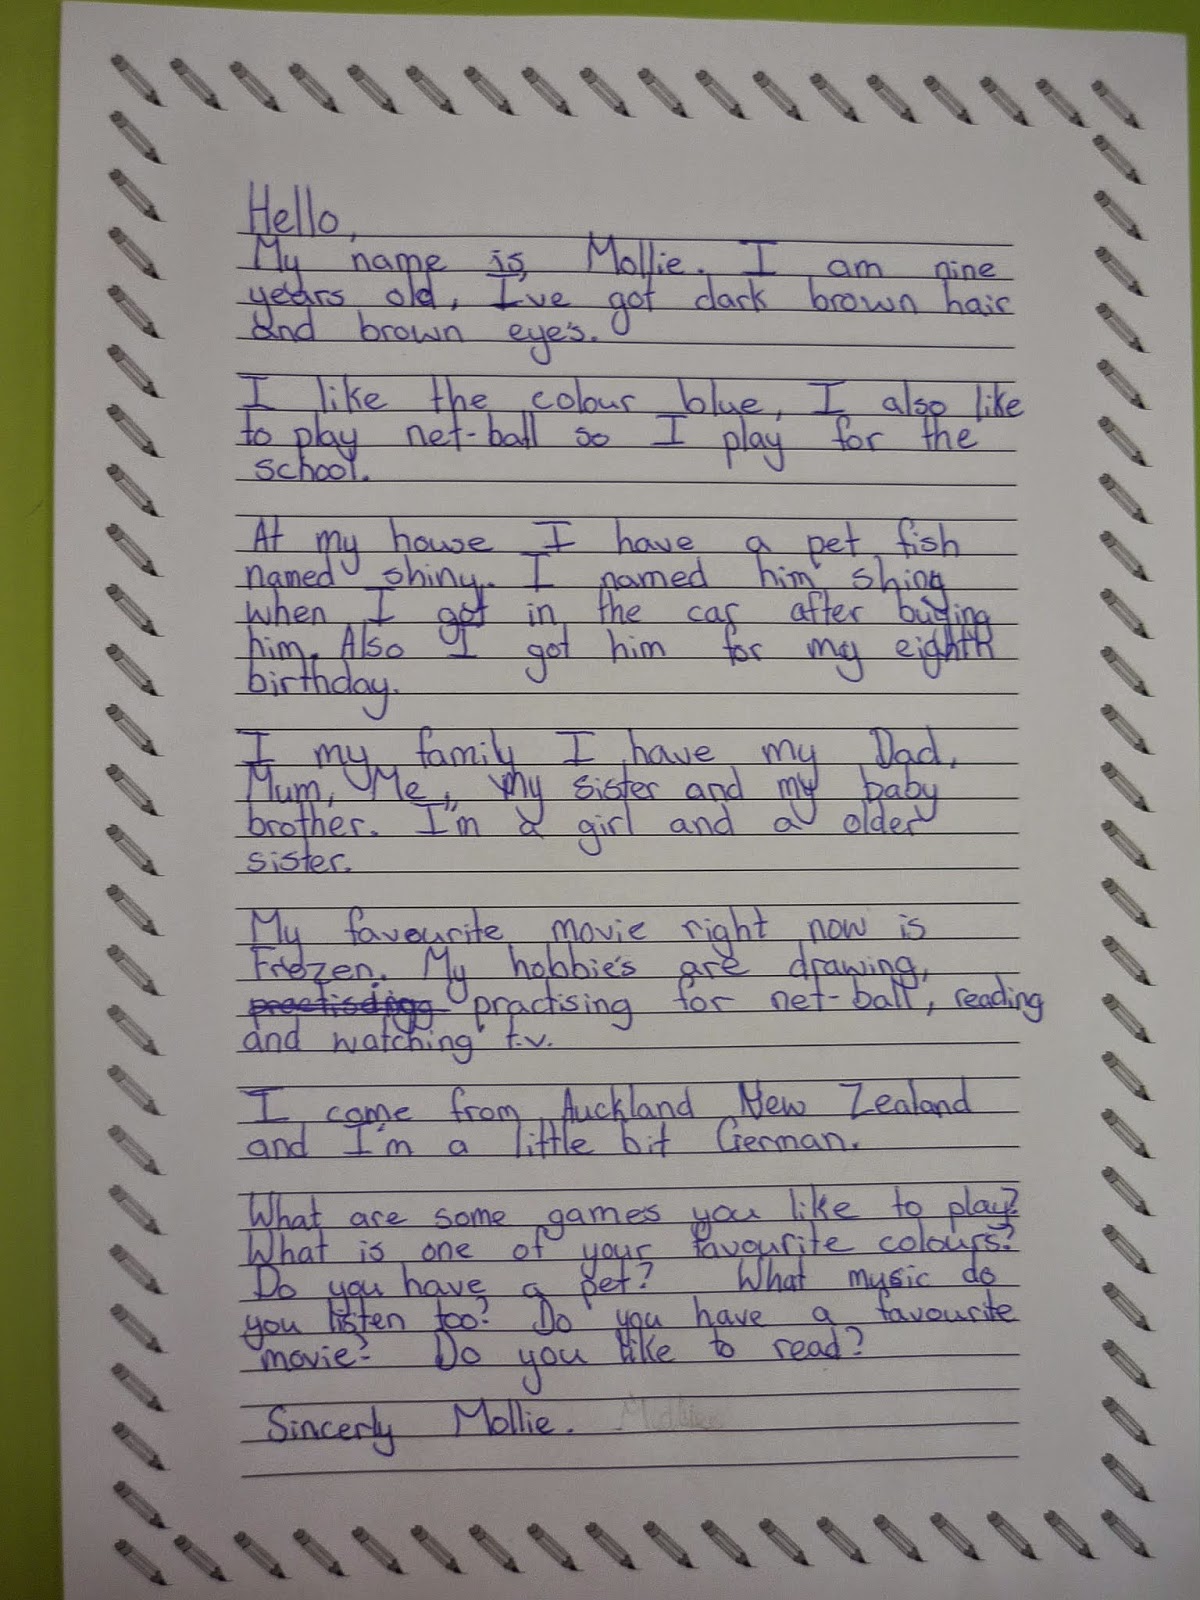 Hello,
My name is Mollie. I am nine
years old, I've got dark brown hair
and brown eyes.
I like the colour blue, I also like
to play net-ball so I play for the
school.
At my house I have a pet fish
named shiny. I named him shiny
when I got in the car after buying
him. Also I got him for my eighth
birthday.
I my family I have my Dad,
Mum, Me, my sister and my baby
brother. I'm a girl and a older
sister.
My favourite movie right now is
Frozen. My hobbie's are drawing,
practising for net-ball, reading
and watching t.v.
I come from Auckland New Zealand
and I'm a little bit German.
What are some games you like to play?
What is one of your favourite colours?
Do you have a pet? What music do
you listen too? Do you have a favourite
movie? Do you like to read?
Sincerly Mollie. Mollie